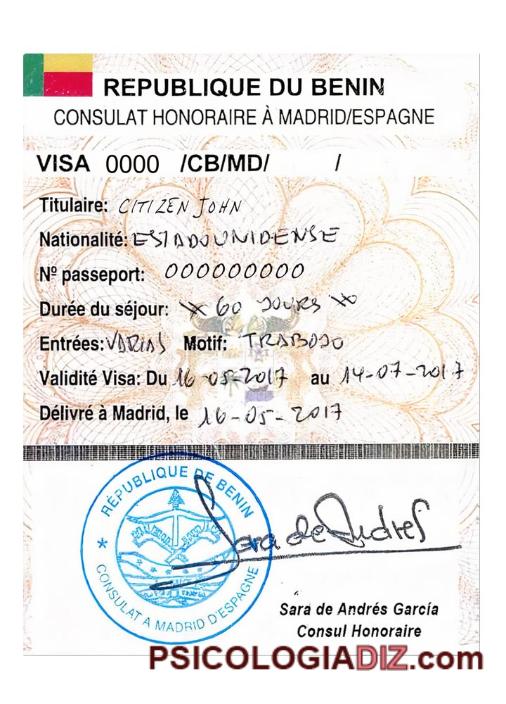 REPUBLIQUE DU BENIN
CONSULAT HONORAIRE À MADRID/ESPAGNE
VISA 0000 /CB/MD/ /
Titulaire: CITIZEN JOHN
Nationalité: ESTADOUNIDENSE
Nº passeport: 000000000
Durée du séjour: 60 JOURS
Entrées: VARIAS Motif: TRABAJO
Validité Visa: Du 16-05-2017 au 14-07-2017
Délivré à Madrid, le 16-05-2017
RÉPUBLIQUE DE BENIN
CONSULAT A MADRID D'ESPAGNE
Sara de Andrés
Sara de Andrés García
Consul Honoraire
PSICOLOGIADIZ.com